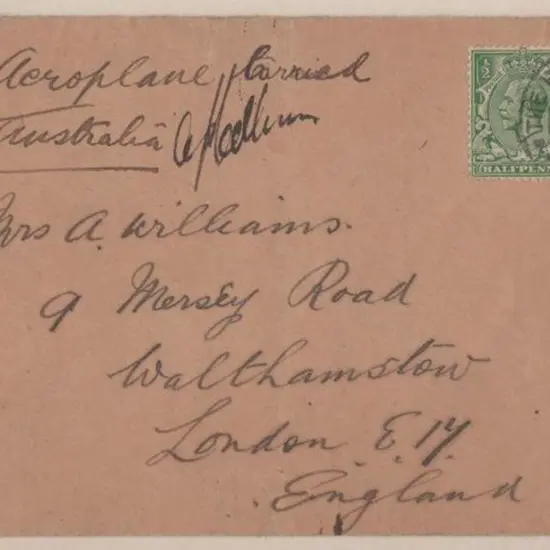 Aeroplane Carried
Australia
Mrs A. Williams.
9 Mersey Road
Walthamstow
London E.17.
England
½
HALFPENN